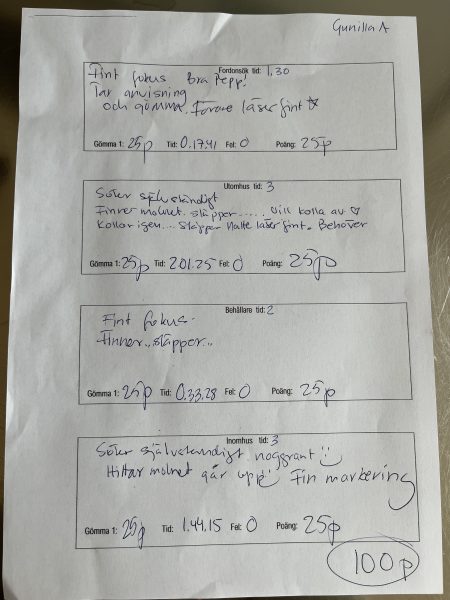 Gunilla A
Fordonsök tid: 1,30
Fint fokus Bra Pepp!
Tar anvisning
och gömma. Förare läser fint
Gömma 1: 25p Tid: 0.17.41 Fel: 0 Poäng: 25p
Utomhus tid: 3
Söker självständigt
Finner molnet. släpper...... vill kolla av
Kollar igen... släpper Matte läser fint. Behöver
Gömma 1: 25p Tid: 2.01.25 Fel: 0 Poäng: 25p
Behållare tid: 2
Fint fokus.
Finner.. släpper..
Gömma 1: 25p Tid: 0.33.28 Fel: 0 Poäng: 25p
Inomhus tid: 3
Söker självständigt noggrant
Hittar molnet går upp Fin markering
Gömma 1: 25p Tid: 1.44.15 Fel: 0 Poäng: 25p
100p